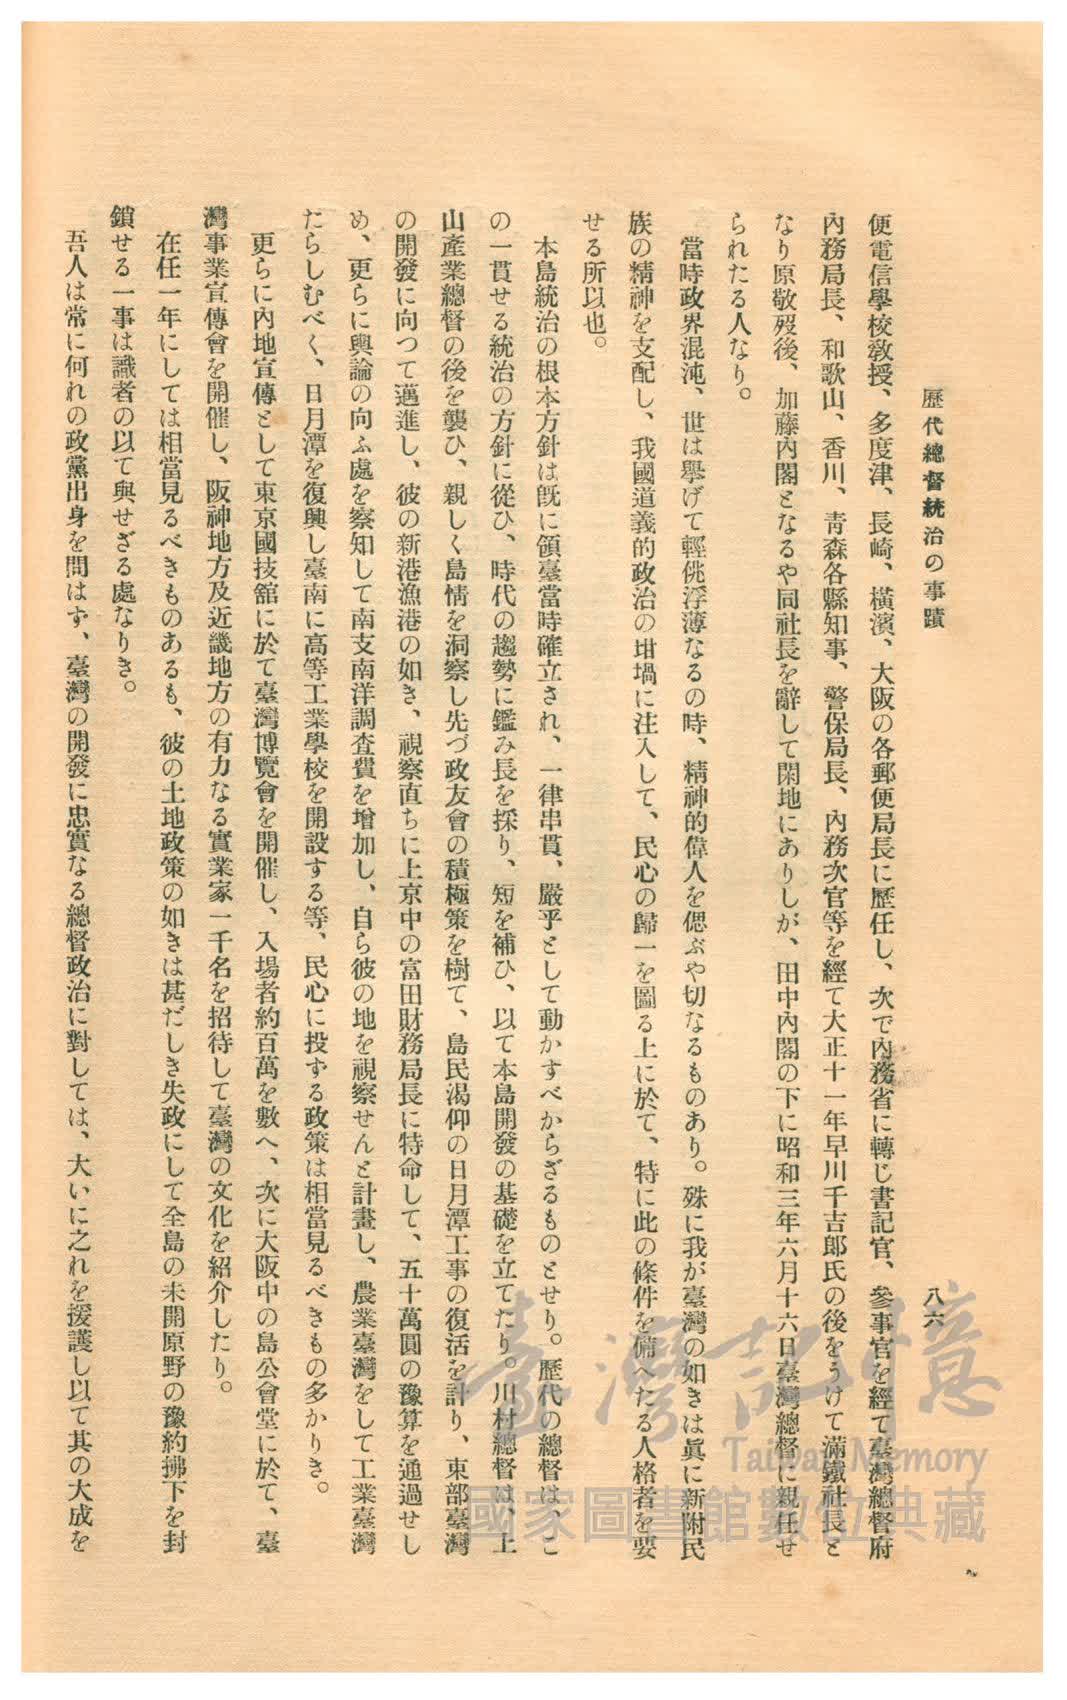 歷代總督統治の事蹟
八六
便電信學校敎授、多度津、長崎、橫濱、大阪の各郵便局長に歷任し、次で內務省に轉じ書記官、參事官を經て臺灣總督府
內務局長、和歌山、香川、靑森各縣知事、警保局長、內務次官等を經て大正十一年早川千吉郎氏の後をうけて滿鐵社長と
なり原敬歿後、加藤內閣となるや同社長を辭して閑地にありしが、田中內閣の下に昭和三年六月十六日臺灣總督に親任せ
られたる人なり。
當時政界混沌、世は擧げて輕佻浮薄なるの時、精神的偉人を偲ぶや切なるものあり。殊に我が臺灣の如きは眞に新附民
族の精神を支配し、我國道義的政治の坩堝に注入して、民心の歸一を圖る上に於て、特に此の條件を備へたる人格者を要
せる所以也。
本島統治の根本方針は旣に領臺當時確立され、一律串貫、嚴乎として動かすべからざるものとせり。歷代の總督は、こ
の一貫せる統治の方針に從ひ、時代の趨勢に鑑み長を採り、短を補ひ、以て本島開發の基礎を立てたり。川村總督は、上
山產業總督の後を襲ひ、親しく島情を洞察し先づ政友會の積極策を樹て、島民渴仰の日月潭工事の復活を計り、東部臺灣
の開發に向つて邁進し、彼の新港漁港の如き、視察直ちに上京中の富田財務局長に特命して、五十萬圓の豫算を通過せし
め、更らに輿論の向ふ處を察知して南支南洋調査費を增加し、自ら彼の地を視察せんと計畫し、農業臺灣をして工業臺灣
たらしむべく、日月潭を復興し臺南に高等工業學校を開設する等、民心に投ずる政策は相當見るべきもの多かりき。
更らに內地宣傳として東京國技舘に於て臺灣博覽會を開催し、入場者約百萬を數へ、次に大阪中の島公會堂に於て、臺
灣事業宣傳會を開催し、阪神地方及近畿地方の有力なる實業家一千名を招待して臺灣の文化を紹介したり。
在任一年にしては相當見るべきものあるも、彼の土地政策の如きは甚だしき失政にして全島の未開原野の豫約拂下を封
鎖せる一事は識者の以て與せざる處なりき。
吾人は常に何れの政黨出身を問はず、臺灣の開發に忠實なる總督政治に對しては、大いに之れを援護し以て其の大成を
臺灣記憶
Taiwan Memory
國家圖書館數位典藏